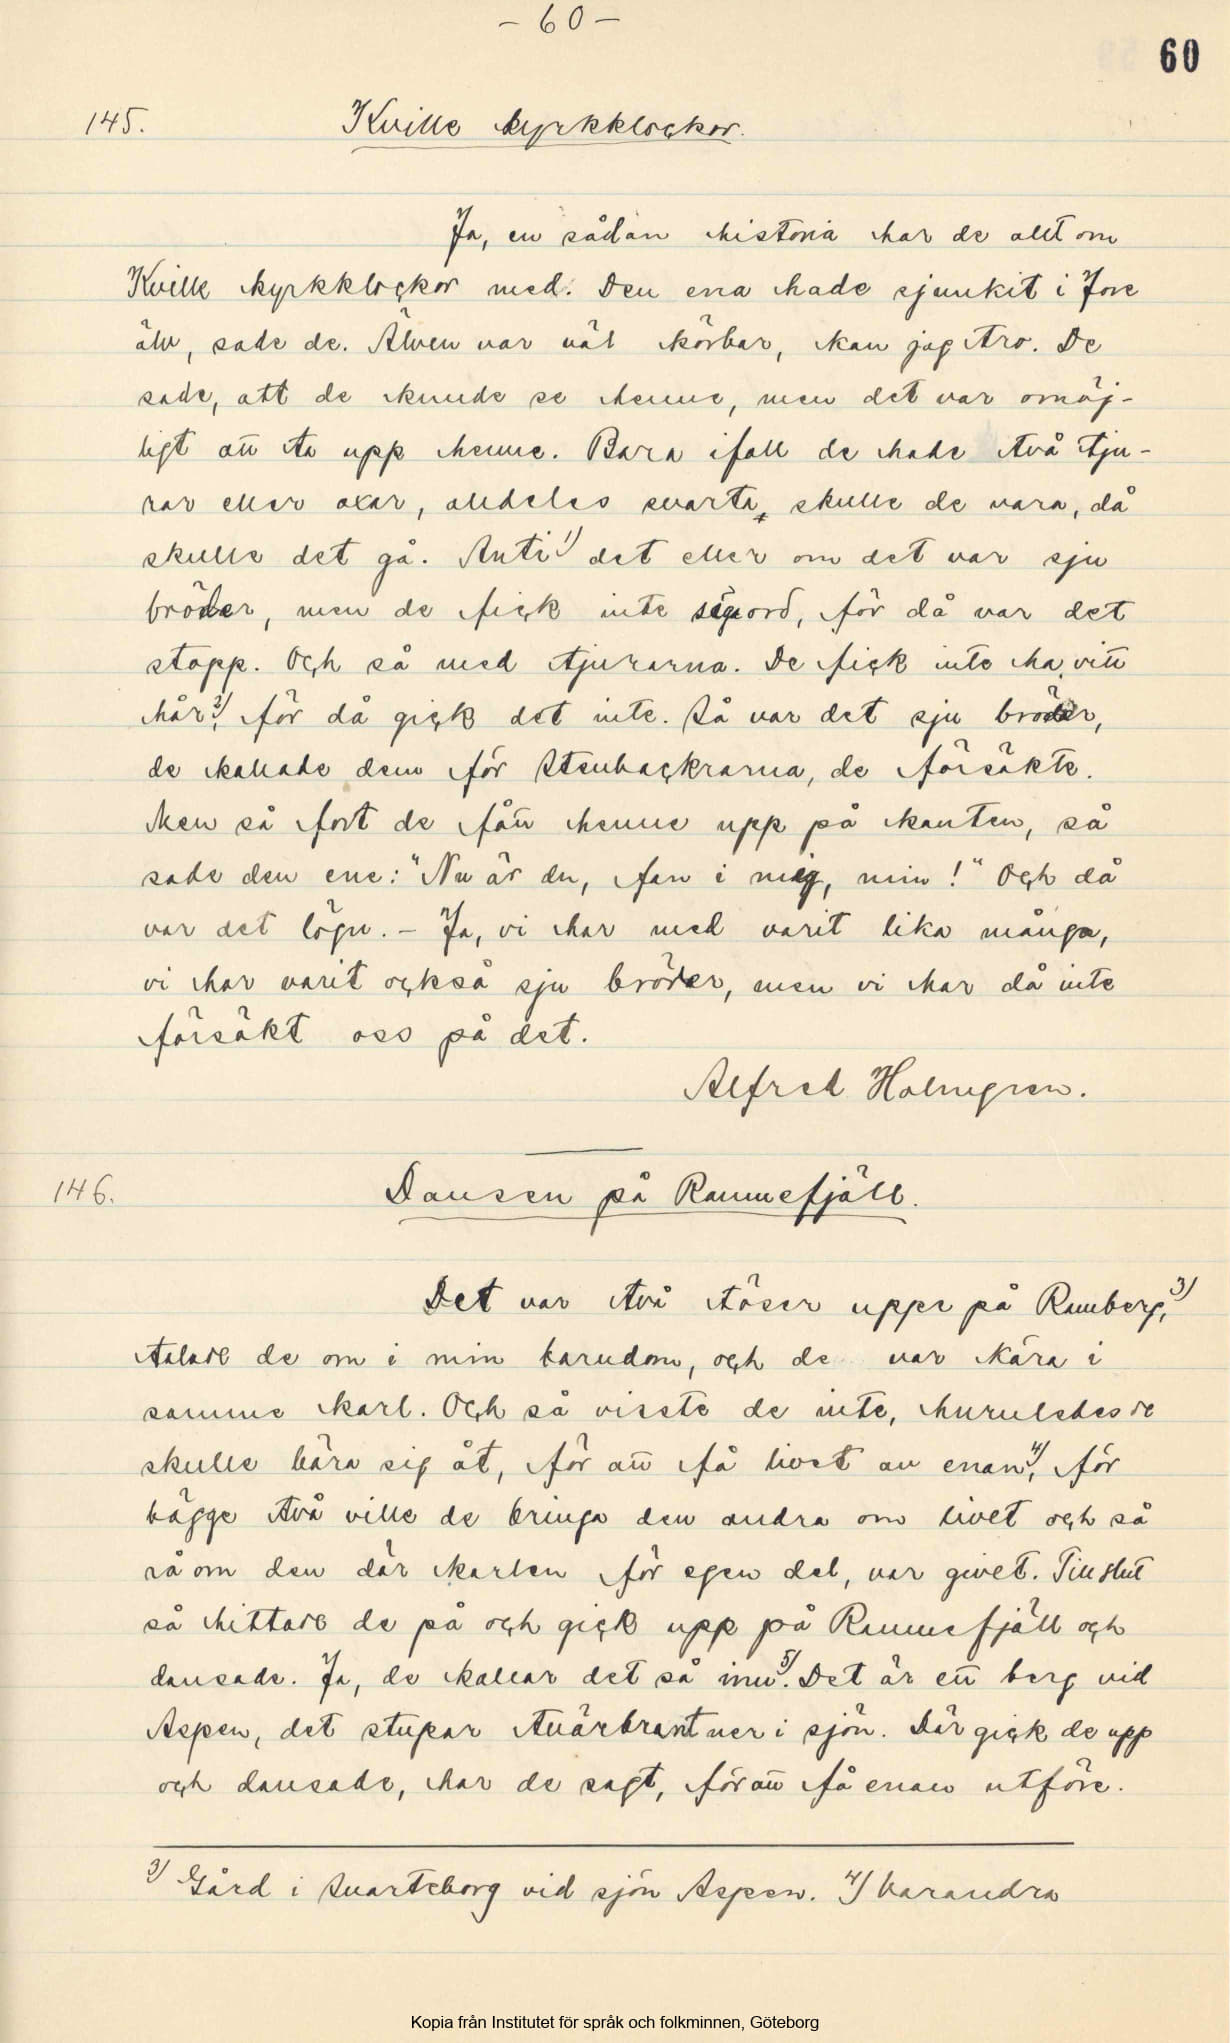 - 60 -
60
145. Kville kyrkklockor.
Ja, en sådan historia har de allt om
Kville kyrkklockor med. Den ena hade sjunkit i Jore
älv, sade de. Älven var väl körbar, kan jag tro. De
sade, att de kunde se henne, men det var omöj-
ligt att ta upp henne. Bara ifall de hade två tju-
rar eller oxar, alldeles svarta, skulle de vara, då
skulle det gå. Anti 1) det eller om det var sju
bröder, men de fick inte säga ord, för då var det
stopp. Och så med tjurarna. De fick inte ha vitt
hår 2), för då gick det inte. Så var det sju bröder,
de kallade dem för Stenhackrarna, de försökte.
Men så fort de fått henne upp på kanten, så
sade den ene: "Nu är du, fan i mig, min!" Och då
var det lögn. - Ja, vi har med varit lika många,
vi har varit också sju bröder, men vi har då inte
försökt oss på det.
Alfred Holmgren.
146. Dansen på Rammefjäll.
Det var två töser uppe på Ramberg, 3)
talade de om i min barndom, och de var kära i
samme karl. Och så visste de inte, huruledes de
skulle bära sig åt, för att få livet av enan 4), för
bägge två ville de bringa den andra om livet och så
rå om den där karlen för egen del, var givet. Till slut
så hittade de på och gick upp på Rammefjäll och
dansade. Ja, de kallar det så innu 5). Det är ett berg vid
Aspen, det stupar tvärbrant ner i sjön. Där gick de upp
och dansade, har de sagt, för att få enan utföre.
3) Gård i Svarteborg vid sjön Aspen. 4) varandra
Kopia från Institutet för språk och folkminnen, Göteborg